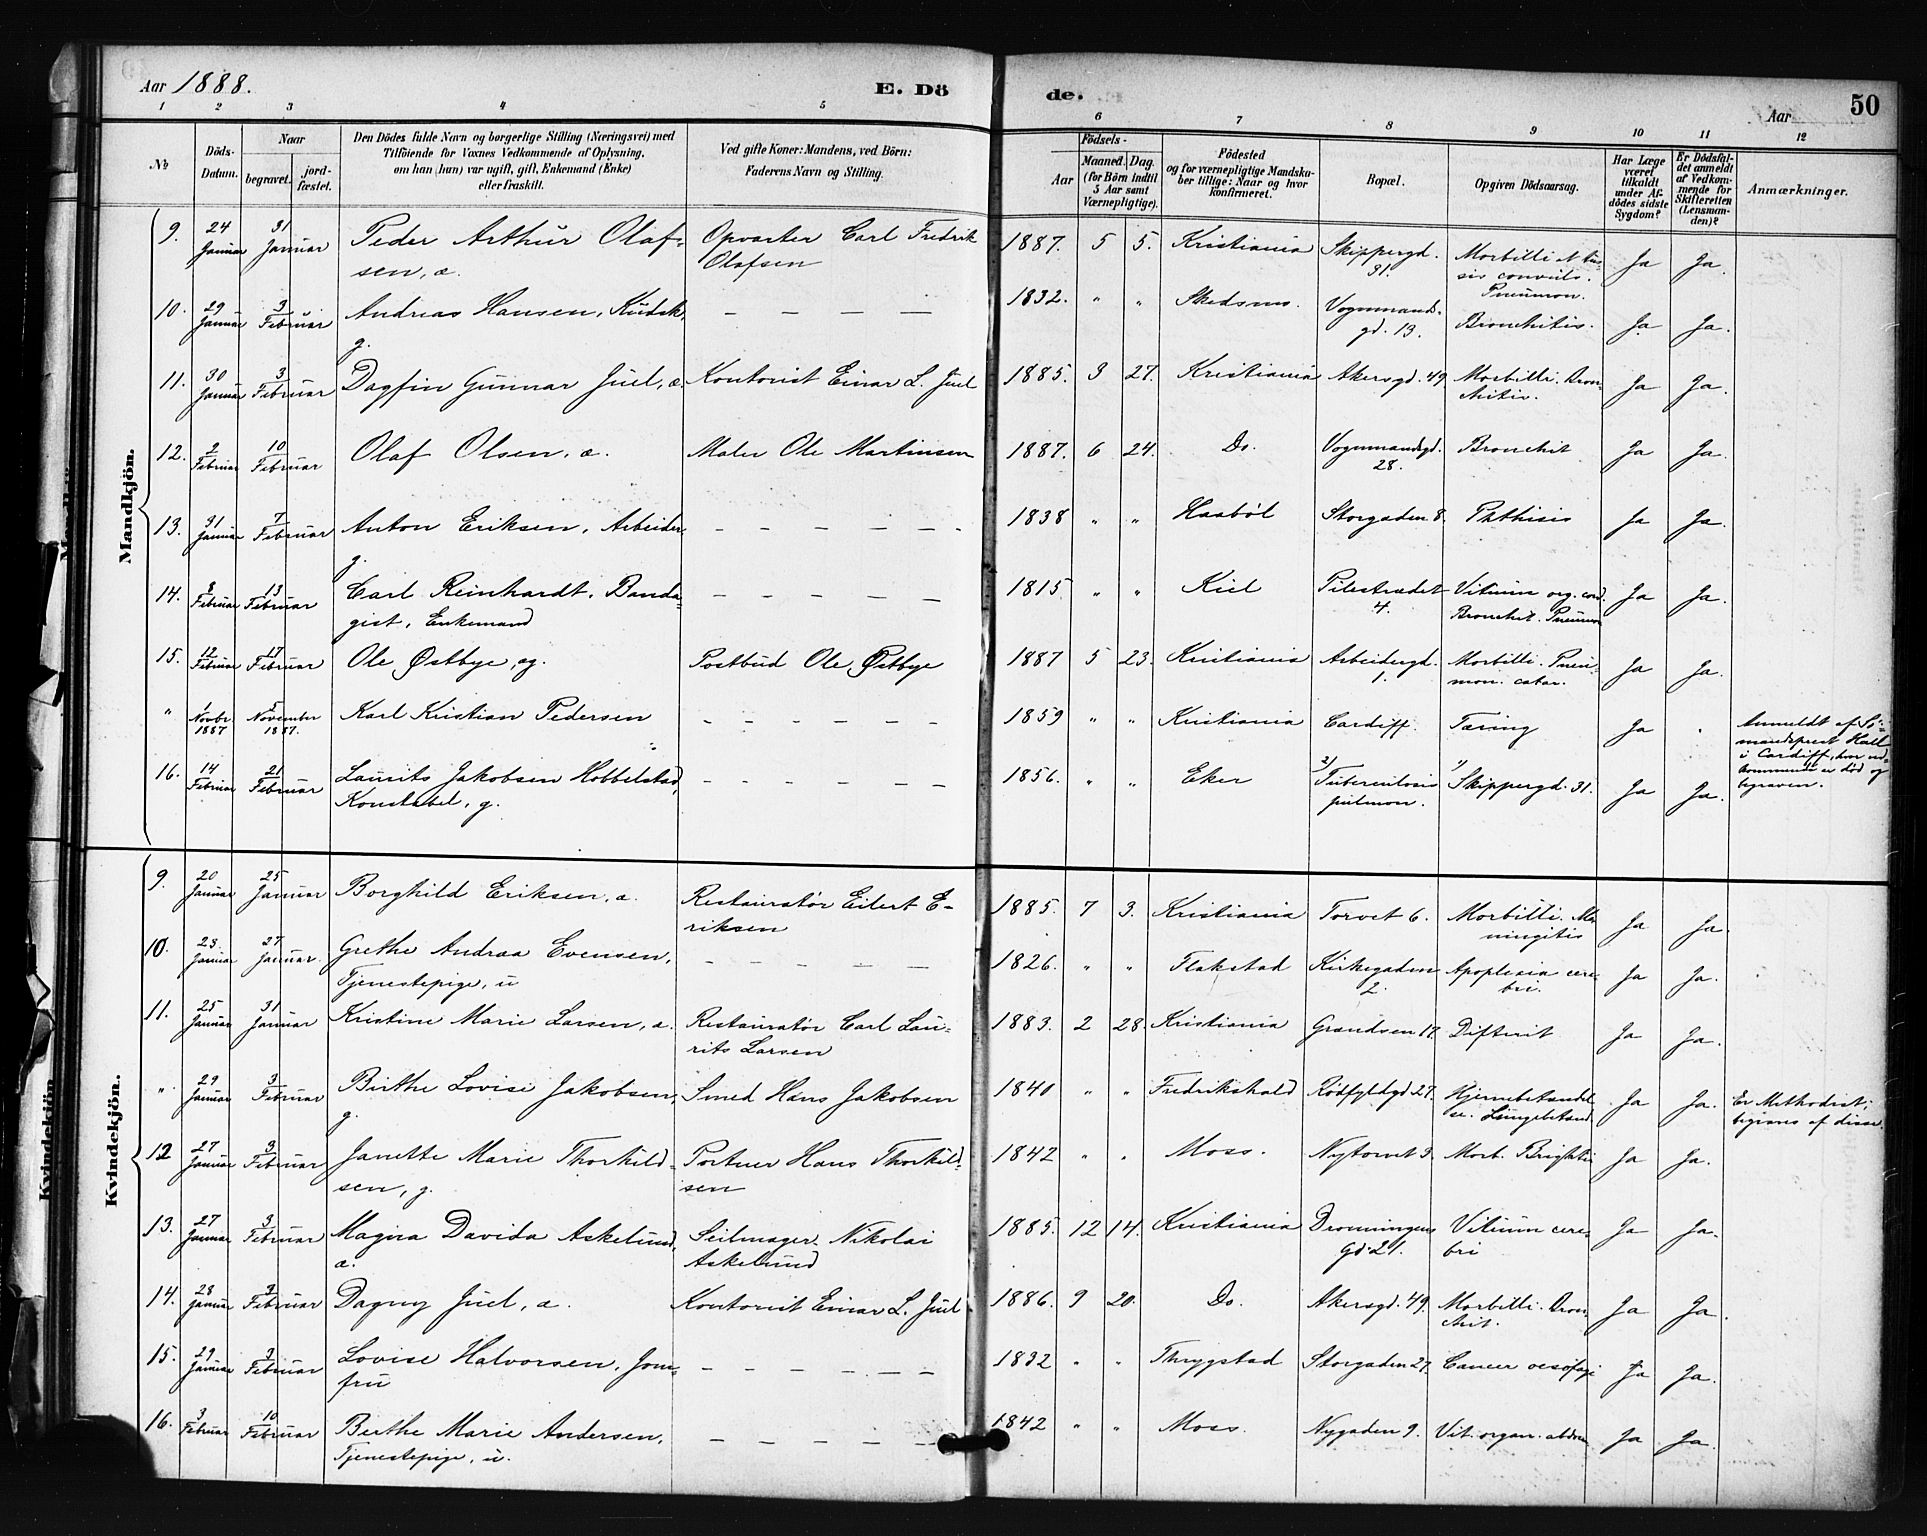 Aar 1888.
E. Dö
de.
Aar
50
1 2 3 4 5 6 7 8 9 10 11 12
No
Döds-Datum.
Naar
begravet.
jord-fæstet.
Den Dödes fulde Navn og borgerlige Stilling (Næringsvei) med
Tilföiende for Voxnes Vedkommende af Oplysning,
om han (hun) var ugift, gift, Enkemand (Enke)
eller fraskilt.
Ved gifte Koner: Mandens, ved Börn:
Faderens Navn og Stilling.
Födsels-
Aar
Maaned. Dag.
(for Börn indtil
5 Aar samt
Værnepligtige).
Födested
og for værnepligtige Mandsku-
ber tillige: Naar og hvor
konfirmeret.
Bopæl.
Opgiven Dödsaarsag.
Har Læge
været
tilkaldt
under Af-
dödes sidste
Sygdom?
Er Dödsfal-
det anmeldt
af Vedkom-
mende for
Skifteretten
(Lensman-
den)?
Anmærkninger.
Mandkjön.
9. 24 Januar 31 Januar Peder Arthur Olaf- Opvarter Carl Fredrik 1887. 5 5. Kristiania Skippergd. Morbilli et tus- Ja Ja.
sen, æ. Olafsen 31. sis convuls.
Pneumon.
10. 29 Januar 3 Februar Andreas Hansen, Kudsk, — — — — 1832. " " Skedsmo. Vognmands- Bronchitis. Ja Ja.
g. gd. 13.
11. 30 Januar 3 Februar Dagfin Gunnar Juel, æ. Kontorist Einar L. Juel 1885. 3 27. Kristiania Akersgd. 49 Morbilli. Bron- Ja Ja.
chitis.
12. 2 Februar 10 Februar Olaf Olsen, æ. Maler Ole Martinsen 1887. 6 24. Do. Vognmandsgd. Bronchit Ja Ja.
28.
13. 31 Januar 7 Februar Anton Eriksen, Arbeider — — — — — 1838 " " Haaböl Storgaden 8. Phthisis Ja Ja.
g.
14. 8 Februar 13 Februar Carl Reinhardt, Banda- — — — — — 1815. " " Kiel Pilestrædet Vitium org. cord. Ja Ja.
gist, Enkemand 4. Bronchit. Pneumon
15. 12 Februar 17 Februar Ole Østbye, æg. Postbud Ole Østbye 1887 5 23. Kristiania Arbeidergd. Morbilli. Pneu- Ja Ja.
1. mon. catar.
" 1 Novbr 1887 5 November 1887. Karl Kristian Pedersen — — — — — — 1859 " " Kristiania Cardiff. Tæring Ja . Anmeldt af Sö-
mandsprest Hall
i Cardiff, hvor ved-
kommende er död og
begraven.
16. 14 Februar 21 Februar Laurits Jakobsen Hobbelstad, — — — — — 1856. " " Eker 2) Tuberculosis 1) Skippergd. 31. Ja Ja.
Konstabel, g. pulmon.
Kvindekjön.
9. 20 Januar 25 Januar Borghild Eriksen, æ. Restauratør Eilert E- 1885. 7 3. Kristiania Torvet 6. Morbilli. Me- Ja Ja.
riksen ningitis
10. 23. Januar 27 Januar. Grethe Andrea Evensen, — — — — — 1826. " " Flakstad Kirkegaden Apoplexia cere- Ja Ja.
Tjenestepige, u 2. bri.
11. 25 Januar 31 Januar Kristine Marie Larsen, æ. Restauratør Carl Lau- 1883. 2 28. Kristiania Grændsen 17. Difterit Ja Ja.
rits Larsen
" 29 Januar 3 Februar Birthe Lovise Jakobsen, Smed Hans Jakobsen 1840 " " Fredrikshald Rödfyldgd 27. Hjernebetændel- Ja Ja. Er Methodist;
g. se. Lungebetænd. begraves af disse.
12 27 Januar 3 Februar Janette Marie Thorkild- Portner Hans Thorkild- 1842 " " Moss. Nytorvet 3. Morb. Brightii Ja Ja.
sen, g. sen
13. 27 Januar 3 Februar Magna Davida Askelund, Seilmager Nikolai 1885. 12 14. Kristiania Dronningens Vitium cere- Ja Ja.
æ. Askelund Gd. 21. bri
14. 28 Januar 3 Februar Dagny Juel, æ. Kontorist Einar L. Juel 1886. 9 20. Do. Akersgd. 49. Morbilli. Bron- Ja Ja.
chit.
15. 29 Januar 3 Februar Lovise Halvorsen, Jom- — — — — — 1832 " " Thrygstad Storgaden 27. Cancer oesofagi Ja Ja.
fru
16. 3 Februar 10 Februar Berthe Marie Andersen, — — — — — 1842 " " Moss. Nygaden 9. Vit. organ. abdom Ja Ja.
Tjenestepige, u.